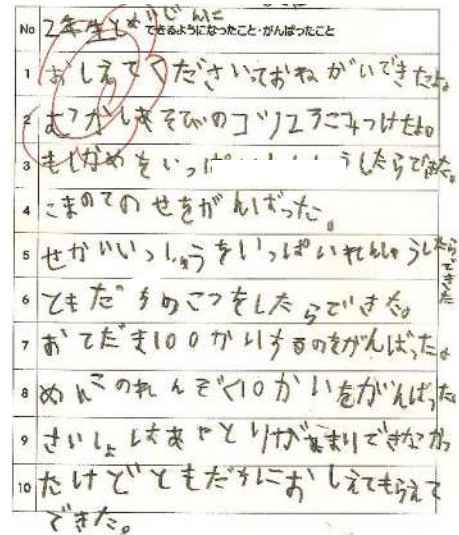 No 2年生とめいじんに
できるようになったこと・がんばったこと
1 おしえてくださいっておねがいできたよ。
2 むかしあそびのコツ2こみつけたよ。
3 もしかめをいっぱ うしたらできた。
4 こまのてのせをがんばった。
5 せかいいっしゅうをいっぱいれんしゅうしたらできた
6 ともだちのこつをしたらできた。
7 おてだま100かいするのをがんばったよ
8 めんこのれんぞく10かいをがんばった。
9 さいしょはあやとりがあまりできなかっ
10 たけどともだちにおしえてもらえて
できた。